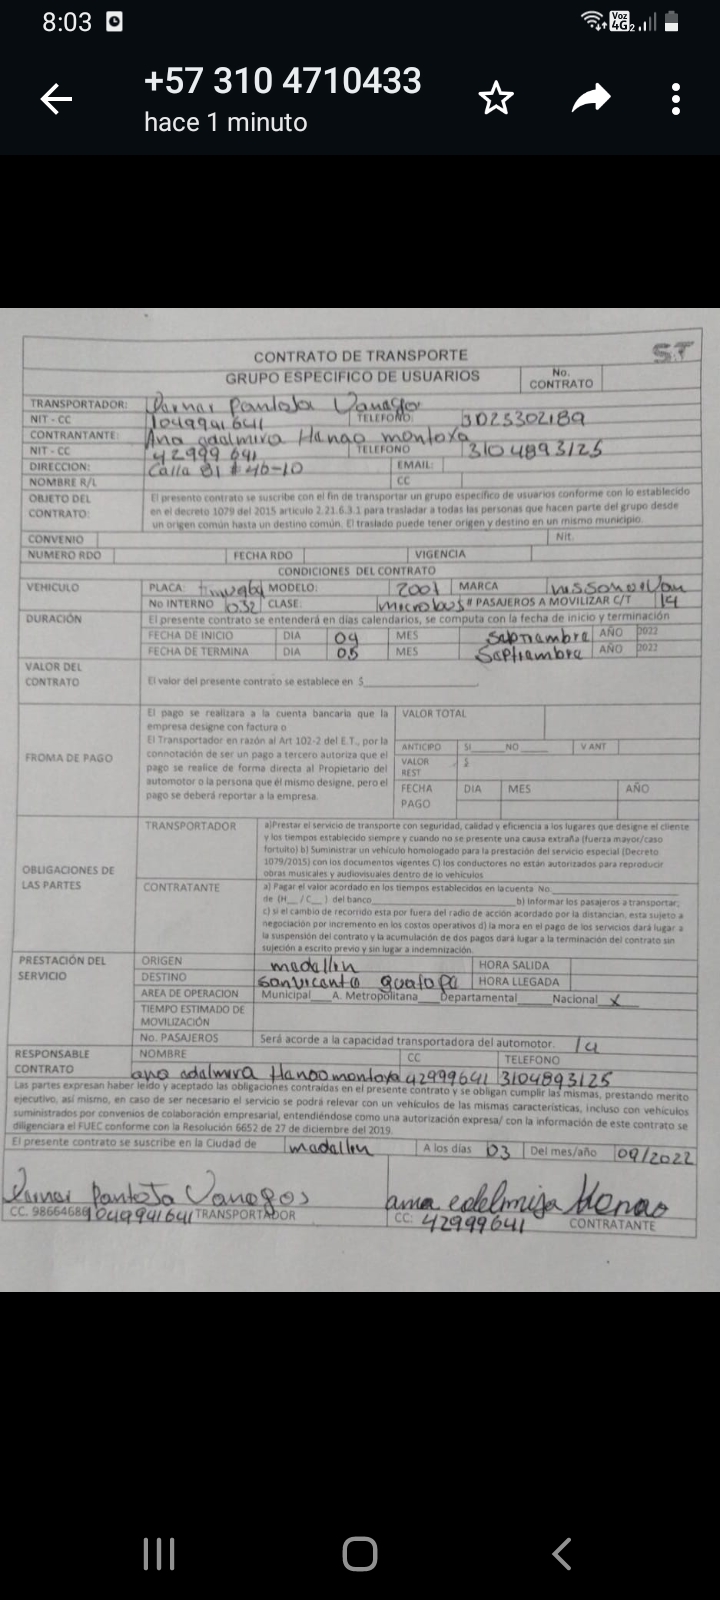 8:03
Voz 4G 2
+57 310 4710433
hace 1 minuto
ST
CONTRATO DE TRANSPORTE
GRUPO ESPECIFICO DE USUARIOS No. CONTRATO
TRANSPORTADOR: Pantoja
NIT - CC 1049941641 TELEFONO: 3023302189
CONTRANTANTE: Ana adalmira Hanao montoya
NIT - CC 42999641 TELEFONO 3104893125
DIRECCION: Calla 81 # 46-10 EMAIL:
NOMBRE R/L CC
OBJETO DEL CONTRATO: El presento contrato se suscribe con el fin de transportar un grupo especifico de usuarios conforme con lo establecido
en el decreto 1079 del 2015 articulo 2.21.6.3.1 para trasladar a todas las personas que hacen parte del grupo desde
un origen común hasta un destino común. El traslado puede tener origen y destino en un mismo municipio.
CONVENIO Nit.
NUMERO RDO FECHA RDO VIGENCIA
CONDICIONES DEL CONTRATO
VEHICULO PLACA: MODELO: 2001 MARCA
No INTERNO 1032 CLASE: microbus # PASAJEROS A MOVILIZAR C/T 14
DURACIÓN El presente contrato se entenderá en días calendarios, se computa con la fecha de inicio y terminación
FECHA DE INICIO DIA 04 MES Saptiambre AÑO 2022
FECHA DE TERMINA DIA 05 MES Saptiambre AÑO 2022
VALOR DEL CONTRATO El valor del presente contrato se establece en $
FROMA DE PAGO
El pago se realizara a la cuenta bancaria que la
empresa designe con factura o
El Transportador en razón al Art 102-2 del E.T., por la
connotación de ser un pago a tercero autoriza que el
pago se realice de forma directa al Propietario del
automotor o la persona que él mismo designe, pero el
pago se deberá reportar a la empresa.
VALOR TOTAL
ANTICIPO SI NO V ANT
VALOR REST $
FECHA PAGO DIA MES AÑO
OBLIGACIONES DE LAS PARTES
TRANSPORTADOR a)Prestar el servicio de transporte con seguridad, calidad y eficiencia a los lugares que designe el cliente
y los tiempos establecido siempre y cuando no se presente una causa extraña (fuerza mayor/caso
fortuito) b) Suministrar un vehículo homologado para la prestación del servicio especial (Decreto
1079/2015) con los documentos vigentes C) los conductores no están autorizados para reproducir
obras musicales y audiovisuales dentro de lo vehículos
CONTRATANTE a) Pagar el valor acordado en los tiempos establecidos en la cuenta No.
de (H__/C__) del banco b) Informar los pasajeros a transportar;
c) si el cambio de recorrido esta por fuera del radio de acción acordado por la distancian, esta sujeto a
negociación por incremento en los costos operativos d) la mora en el pago de los servicios dará lugar a
la suspensión del contrato y la acumulación de dos pagos dará lugar a la terminación del contrato sin
sujeción a escrito previo y sin lugar a indemnización.
PRESTACIÓN DEL SERVICIO
ORIGEN madallin HORA SALIDA
DESTINO sanvicanta guatapa HORA LLEGADA
AREA DE OPERACION Municipal___A. Metropolitana___Departamental___Nacional X
TIEMPO ESTIMADO DE MOVILIZACIÓN
No. PASAJEROS Será acorde a la capacidad transportadora del automotor. 14
RESPONSABLE CONTRATO NOMBRE CC TELEFONO
ana adalmira Hanao montoya 42999641 3104893125
Las partes expresan haber leído y aceptado las obligaciones contraídas en el presente contrato y se obligan cumplir las mismas, prestando merito
ejecutivo, así mismo, en caso de ser necesario el servicio se podrá relevar con un vehículos de las mismas características, incluso con vehículos
suministrados por convenios de colaboración empresarial, entendiéndose como una autorización expresa/ con la información de este contrato se
diligenciera el FUEC conforme con la Resolución 6652 de 27 de diciembre del 2019.
El presente contrato se suscribe en la Ciudad de madallin A los días 03 Del mes/año 09/2022
Pantoja ana edelmira Henao
CC. 98664686 1049941641 TRANSPORTADOR CC: 42999641 CONTRATANTE